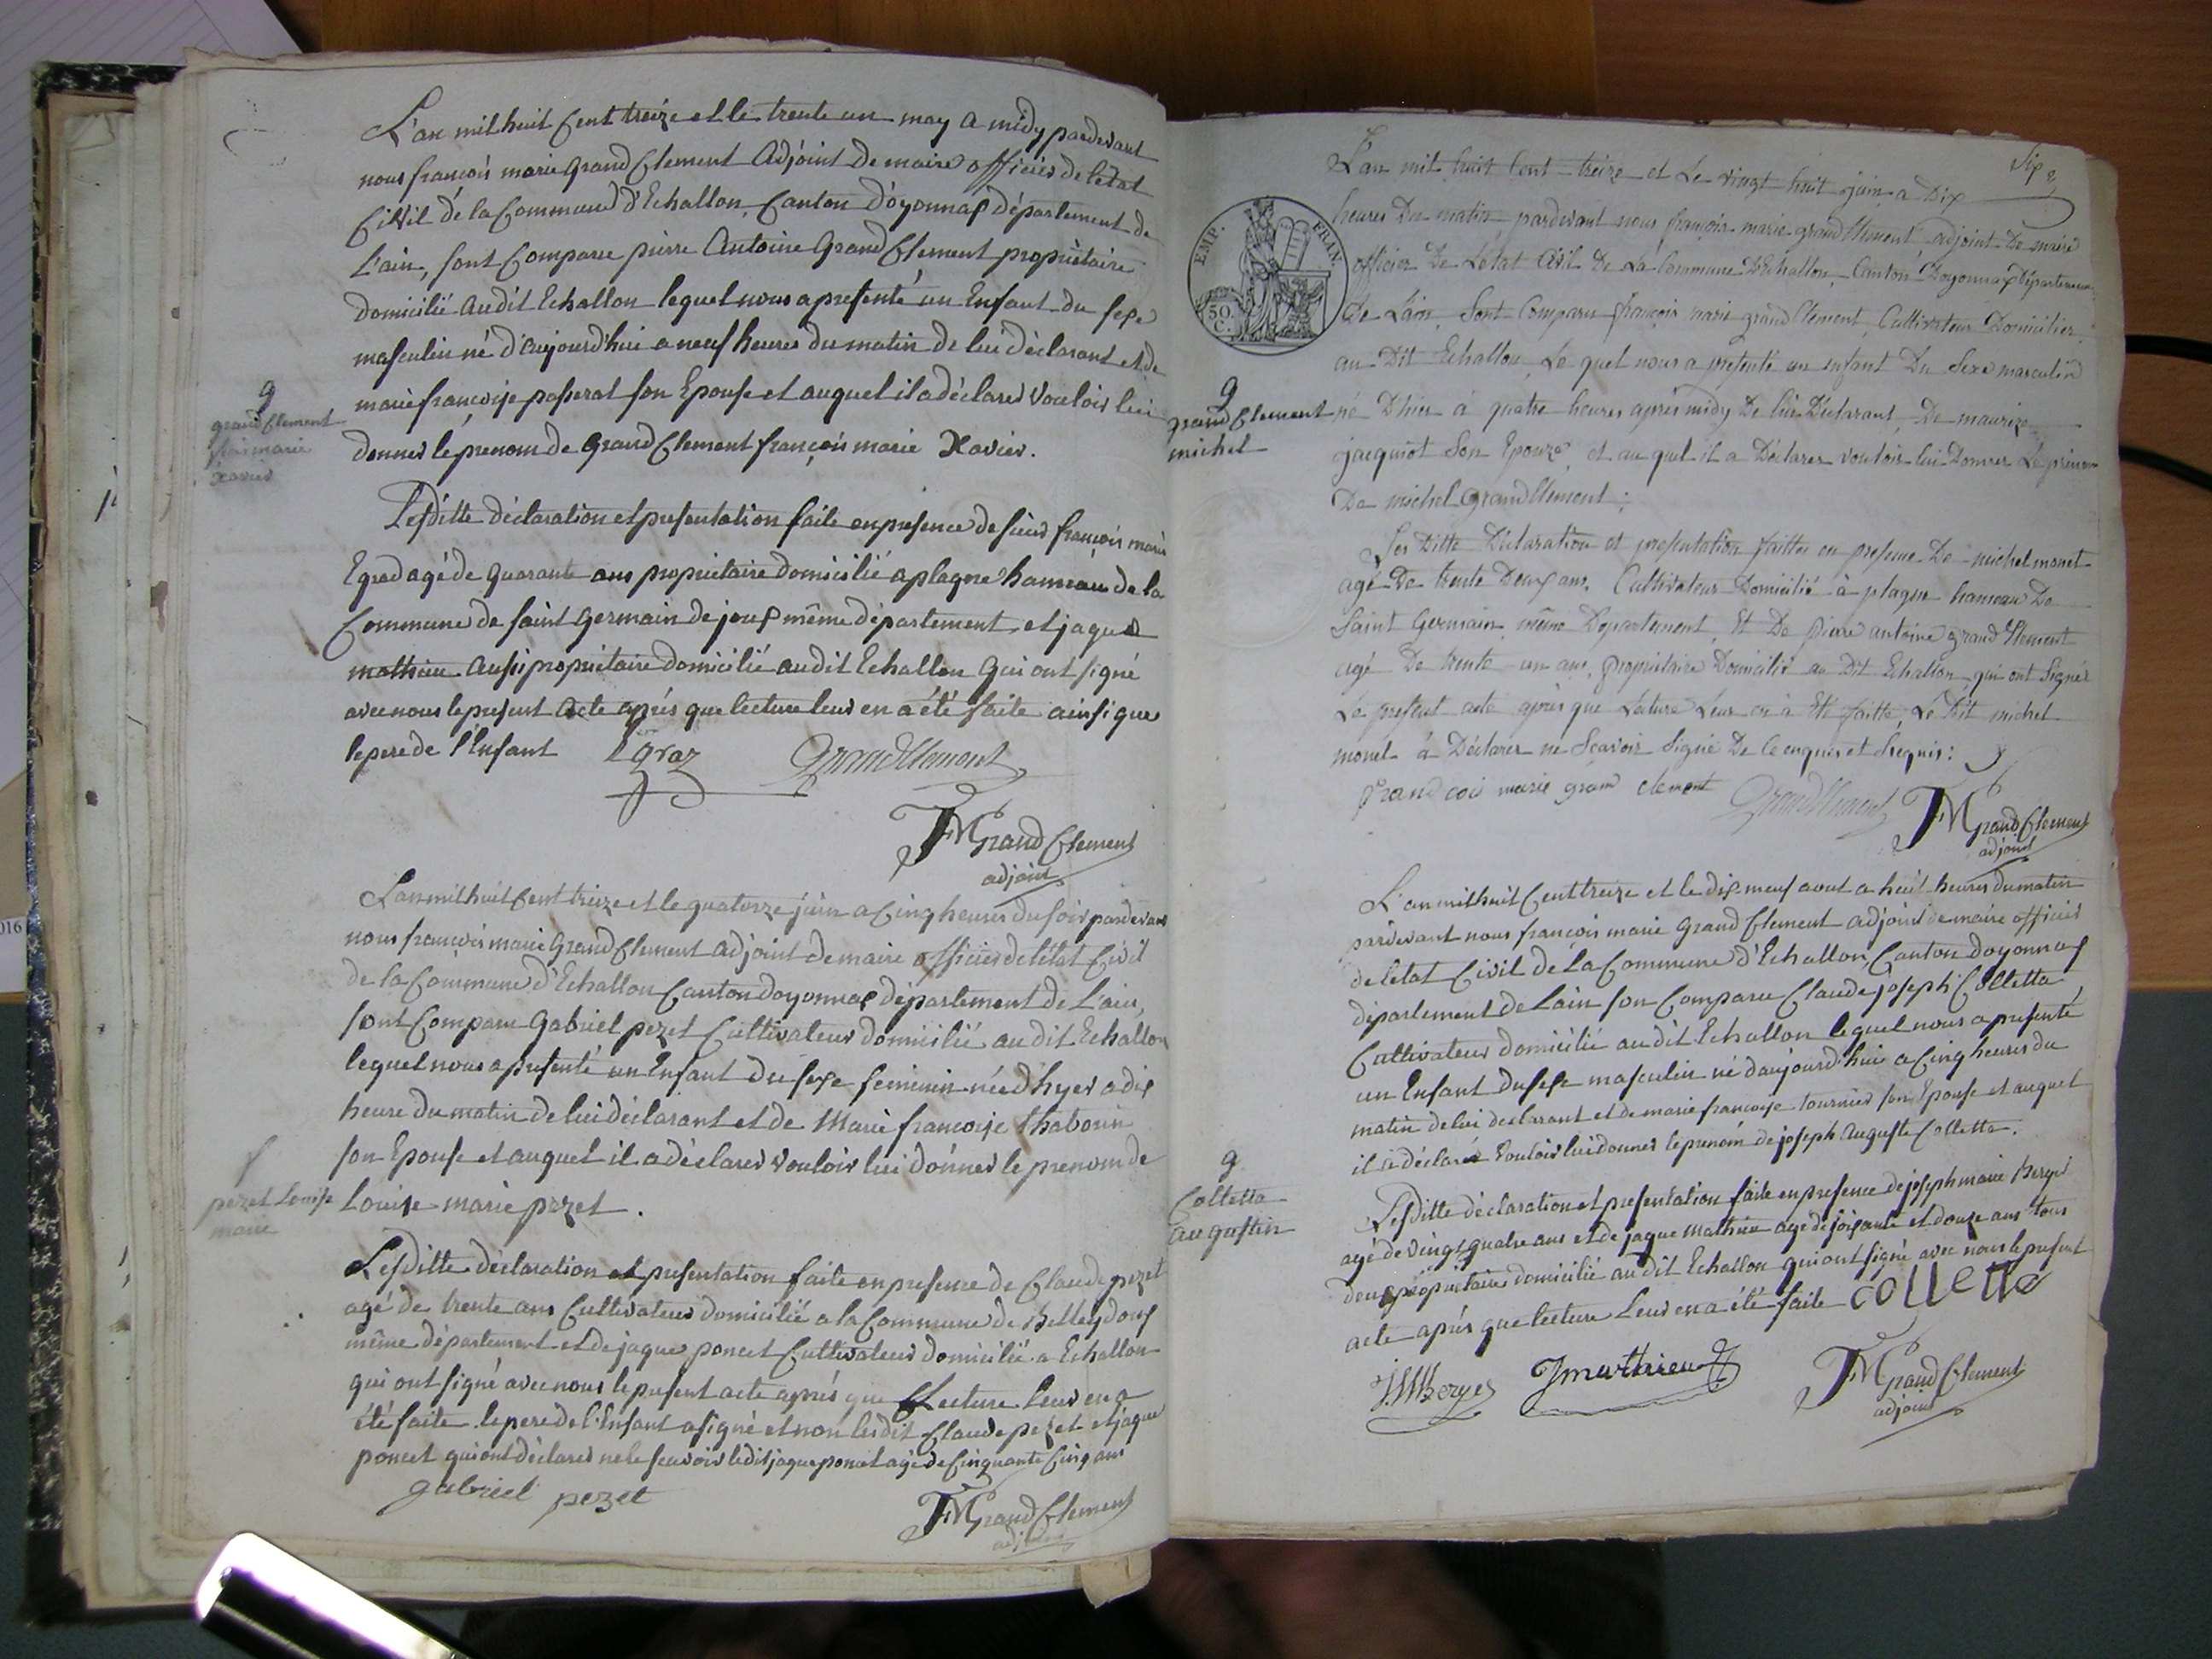 L'an mil huit Cent treize et le trente un may a midy pardevant
nous francois marie Grand Clement Adjoint de maire officier de letat
Civil de la Commune d'Echallon, Canton d'oyonnax département de
L'ain, sont Comparu pierre Antoine Grand Clement propriétaire
domicilié audit Echallon lequel nous a presenté un Enfant du sexe
masculin né d'aujourd'hui a neuf heures du matin de lui déclarant et de
marie françoise passerat son Epouse et auquel il a déclarer Vouloir lui
donner le prenom de Grand Clement françois marie Xavier.
g
grand Clement
fois marie
xavier
Lesditte déclaration et presentation faite en presence de sieur francois marie
Egraz agé de quarante ans propriétaire domicilié a plagne hameau de la
Commune de saint germain de joux même département, et jaque
mathieu aussi propriétaire domicilié audit Echallon qui ont signé
avec nous le present acte après que lecture leur en a été faite ainsi que
le pere de l'Enfant Egraz GrandClement
FMGrandClement
adjoint
L'an mil huit Cent treize et le quatorze juin a Cinq heures du soir pardevant
nous francois marie Grand Clement adjoint de maire officier de letat Civil
de la Commune d'Echallon Canton doyonnax département de L'ain,
sont Comparu Gabriel pezet Cultivateur domicilié audit Echallon
lequel nous a presenté un Enfant du sexe feminin née d'hyer a dix
heure du matin de lui déclarant et de Marie francoise thabourin
son Epouse et auquel il a déclarer vouloir lui donner le prenom de
Louise marie pezet.
f
pezet Louise
marie
Lesditte déclaration et presentation faite en presence de Claude pezet
agé de trente ans Cultivateur domicilié a la Commune de Belleydoux
même département et de jaque poncet Cultivateur domicilié a Echallon
qui ont signé avec nous le present acte après que lecture leur en a
été faite le pere de l'Enfant a signé et non lesdit Claude pezet et jaque
poncet qui ont déclarer ne le scavoir ledit jaque poncet agé de Cinquante Cinq ans
gabriel pezet
FMGrandClement
adjoint
Six
L'an mil huit Cent treize et Le vingt huit juin a Dix
heures Du matin, pardevant nous françois marie grand Clement adjoint De maire
officier De Letat Civil De La Commune D'Echallon, Canton Doyonnax Département
De L'ain, Sont Comparu françois marie grand Clement, Cultivateur Domicilier
au Dit Echallon, Le quel nous a presenté un enfant Du Sexe masculin
né D'hier à quatre heures après midy De lui Déclarant, De maurize
jacquiot Son Epouze, et au quel il a Déclarer vouloir lui Donner Le prenom
De michel Grand Clement;
EMP. FRAN.
50.
C.
g
grand Clement
michel
Les Ditte Déclaration et presentation faittes en presence De michel monet
agé De trente Deux ans, Cultivateur Domicilié à plagne hameau De
Saint Germain même Departement, Et De pierre antoine grand Clement
agé De trente un ans, propriétaire Domicilié au Dit Echallon, qui ont Signés
Le present acte après que Lécture Leur en à Eté faitte, Le Dit michel
monet à Déclarer ne Scavoir Signé De ce enquis et Requis:
frand cois marie gram clement GrandClement FMGrandClement
adjoint
L'an mil huit Cent treize et le dix neuf aout a huit heures du matin
pardevant nous francois marie Grand Clement adjoint de maire officier
de letat Civil de la Commune d'Echallon, Canton doyonnax
département de Lain son Comparu Claude joseph Colletta
Cultivateur domicilié audit Echallon lequel nous a presenté
un Enfant du sexe masculin né d'aujourd'hui a Cinq heures du
matin de lui declarant et de marie francoise tournier son Epouse et auquel
il a déclaré Vouloir lui donner le prenom de joseph Auguste Colletta.
g
Colletta
augustin
Lesditte déclaration et presentation faite en presence de joseph marie Berger
agé de vingt quatre ans et de jaque mathieu agé de soixante et douze ans tous
deux propriétaires domicilié audit Echallon qui ont signé avec nous le present
acte après que lecture Leur en a été faite collette
JMBerger Jmathieu FMGrandClement
adjoint